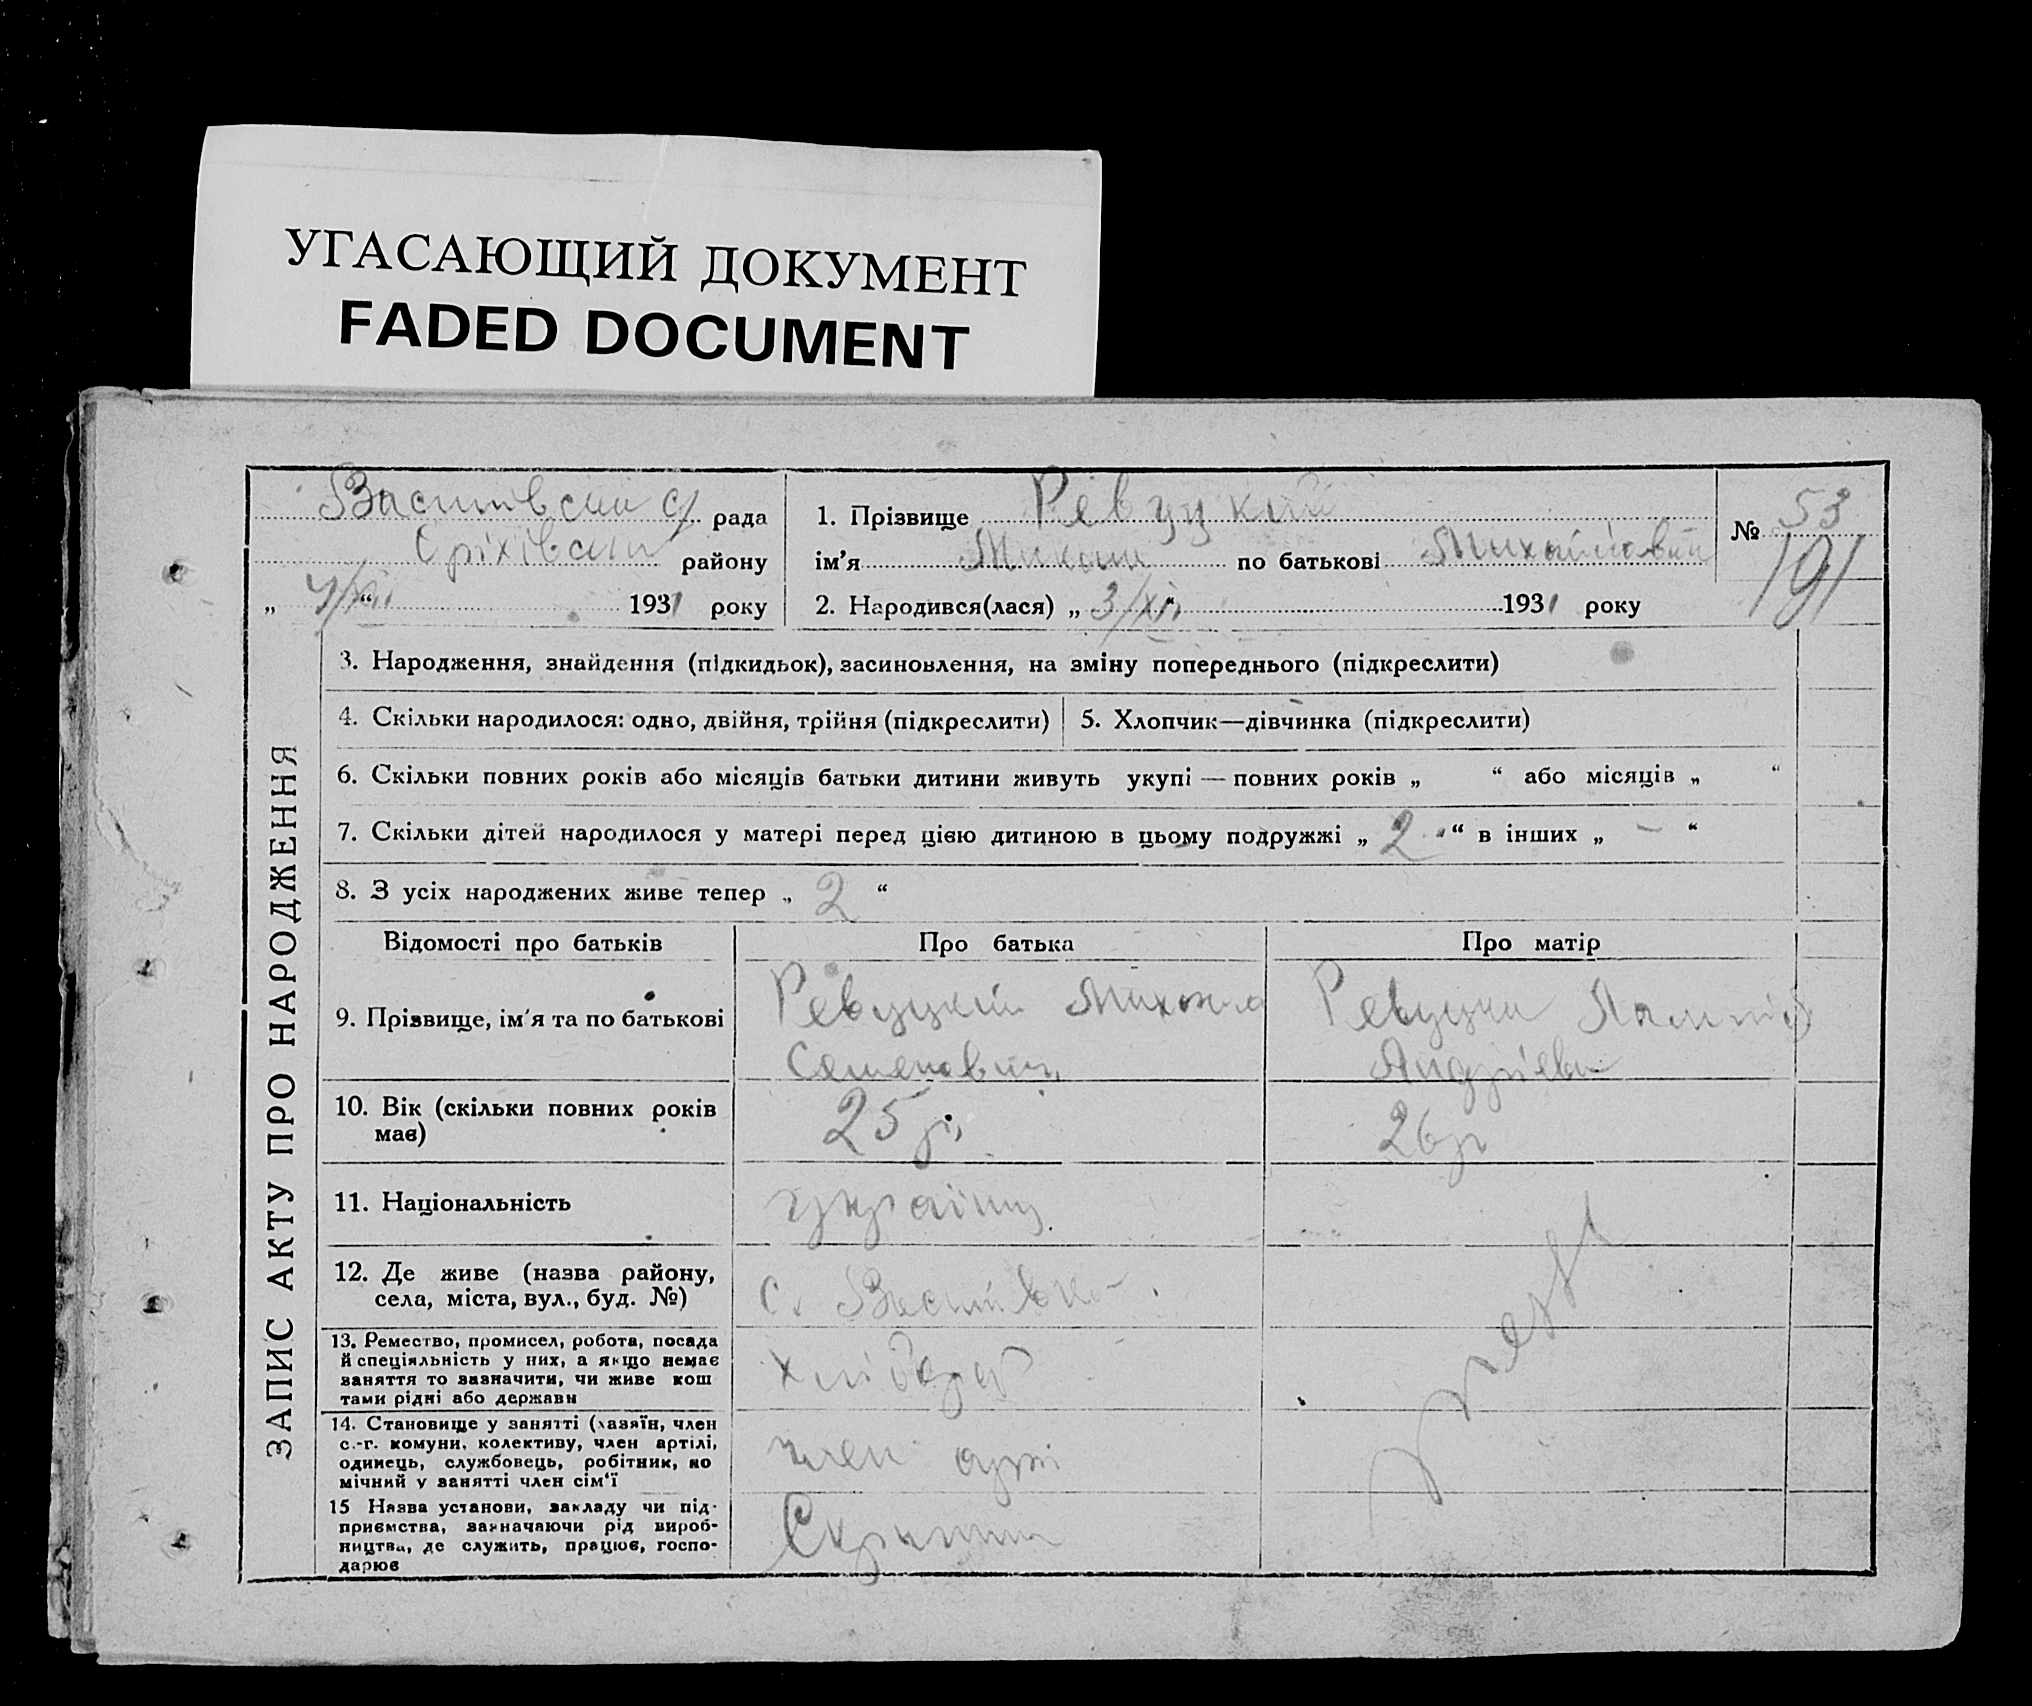 УГАСАЮЩИЙ ДОКУМЕНТ
FADED DOCUMENT
рада
району
„ 4/XII “ 1931 року
1. Прізвище Ревуцкий
ім’я Микола по батькові Михайлович
2. Народився(лася) „ 3/XII “ 1931 року
№ 53
191
ЗАПИС АКТУ ПРО НАРОДЖЕННЯ
3. Народження, знайдення (підкидьок), засиновлення, на зміну попереднього (підкреслити)
4. Скільки народилося: одно, двійня, трійня (підкреслити)
5. Хлопчик—дівчинка (підкреслити)
6. Скільки повних років або місяців батьки дитини живуть укупі — повних років „ “ або місяців „ “
7. Скільки дітей народилося у матері перед цією дитиною в цьому подружжі „ 2 “ в інших „ – “
8. З усіх народжених живе тепер „ 2 “
Відомості про батьків
Про батька
Про матір
9. Прізвище, ім'я та по батькові
Ревуцкий Михайло
Семенович
Ревуцка
Андріевна
10. Вік (скільки повних років
має)
25 р.
26 р
11. Національність
україн.
12. Де живе (назва району,
села, міста, вул., буд. №)
с.
13. Ремество, промисел, робота, посада
й спеціяльність у них, а якщо немає
заняття то зазначити, чи живе кош
тами рідні або держави
хлібороб
14. Становище у занятті (хазяїн, член
с.-г. комуни, колективу, член артілі,
одинець, службовець, робітник, по
мічний у занятті член сім‘ї
член арті
15 Назва установи, закладу чи під-
приємства, зазначаючи рід вироб-
ництва, де служить, працює, госпо-
дарює